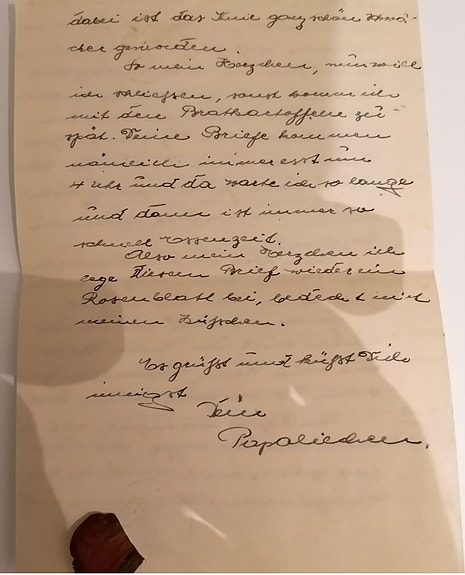 dabei ist das Knie ganz schön schwä-
cher geworden.
So mein Herzchen, nun will
ich schliessen, sonst komm ich
mit den Bratkartoffeln zu-
spät. Deine Briefe kommen
nämlich immer erst um
4 Uhr und da warte ich so lange
und dann ist immer so
schnell Essenzeit.
Also mein Herzchen ich
lege diesen Brief wieder ein
Rosenblatt bei, bedeckt mit
meinen Küsschen.
Es grüßt und küßt Dich
innigst
Dein
Papaliedchen.